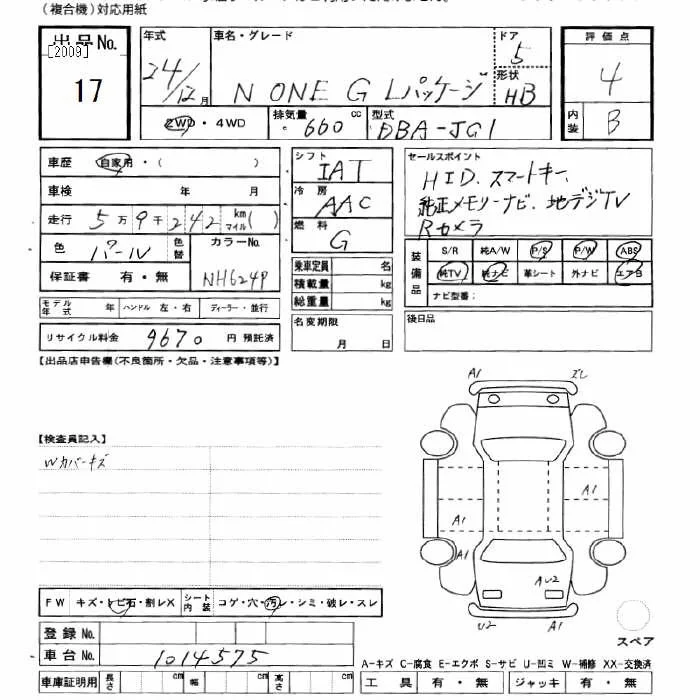 (複合機)対応用紙
出品No. 年式 車名・グレード ドア 評価点
[2009] 24/12月 N ONE G Lパッケージ 5 4
17 形状 HB
2WD・4WD 排気量 660 cc 型式 DBA-JG1 内装 B
車歴 自家用・( ) シフト IAT セールスポイント
車検 年 月 冷房 AAC HID、スマートキー、
走行 5万9千242 km マイル( ) 燃料 G 純正メモリーナビ、地デジTV
Rカメラ
色 パール 色替 カラーNo. NH624P
保証書 有・無
乗車定員 名
積載量 kg
総重量 kg
装備品 S/R 純A/W P/S P/W ABS
純TV 純ナビ 革シート 外ナビ エアB
ナビ型番:
モデル年式 年 ハンドル 左・右 ディーラー・並行
名変期限 月 日
後日品
リサイクル料金 9670 円 預託済
【出品店申告欄(不良箇所・欠品・注意事項等)】
A1 ズレ
【検査員記入】
Wカバーキズ
A1
A1
A1
A1
AU2
U2 A1
スペア
FW キズ・トビ石・割レX シート内装 コゲ・穴・汚レ・シミ・破レ・スレ
登録No.
車台No. 1014575
A-キズ C-腐食 E-エクボ S-サビ U-凹ミ W-補修 XX-交換済
車庫証明用 長さ cm 幅 cm 高さ cm 工具 有・無 ジャッキ 有・無